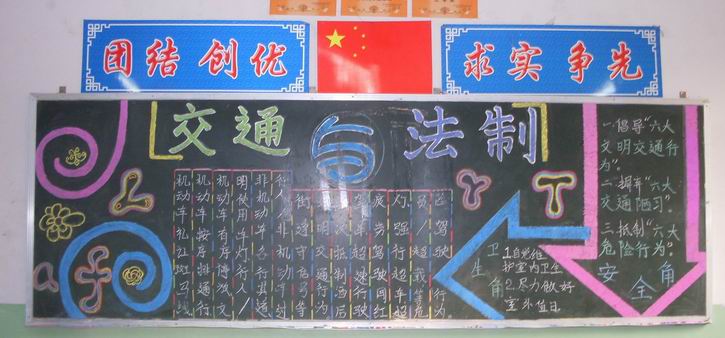 团结 创优
求实 争先
交通与法制
机动车礼让斑马线
机动车按序排通行
机动车有序停放文
明使用车灯行人/
非机动车各行其道
行人/非机动车过
街遵守信号等
明交通行为
坚决抵制酒后
驾车超速行驶
疲劳驾驶闯红
灯强行超车超
员/超载等危
险驾驶行为
卫生角
1.自觉维
护室内卫生
2.尽力做好
室外值日.
一.倡导"六大
文明交通行
为".
二.摒弃"六大
交通陋习".
三.抵制"六大
危险行为".
安全角